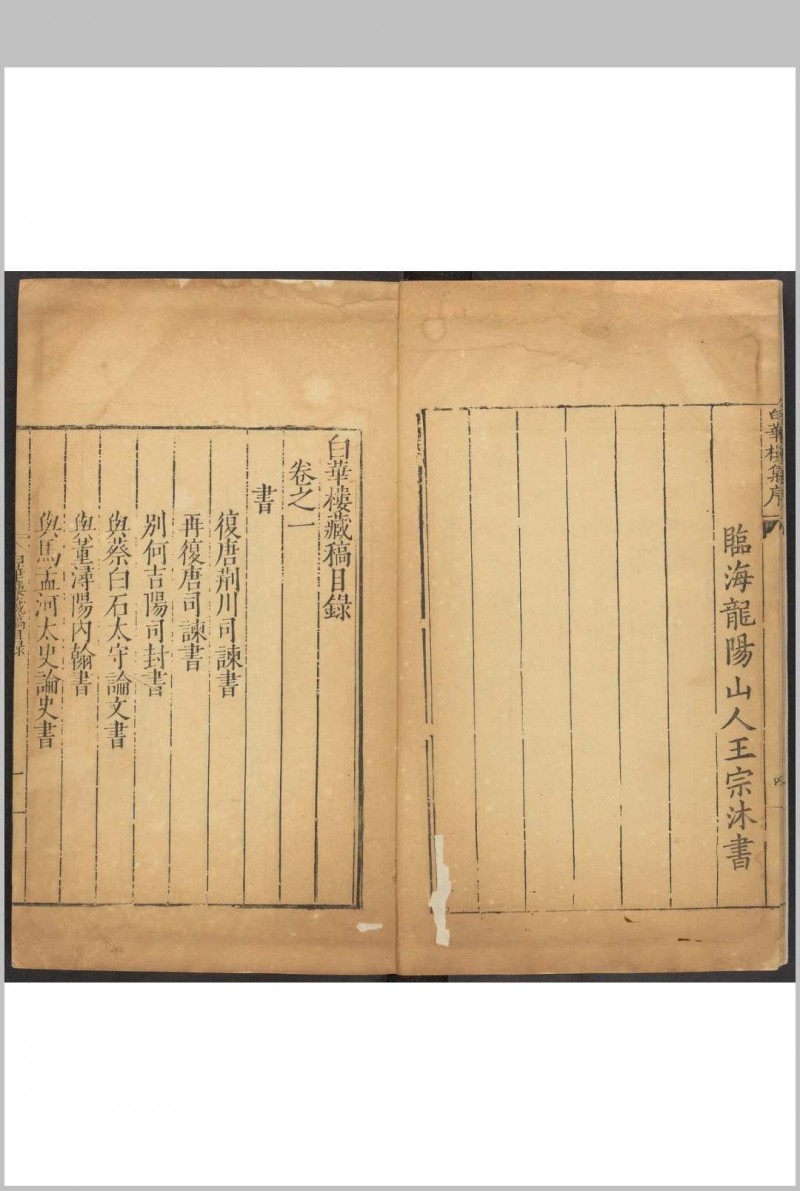 白華樓集序
臨海龍陽山人王宗沐書
白華樓藏稿目錄
卷之一
書
復唐荊川司諫書
再復唐司諫書
別何吉陽司封書
與蔡白石太守論文書
與董潯陽內翰書
與馬孟河太史論史書
白華樓藏稿目錄